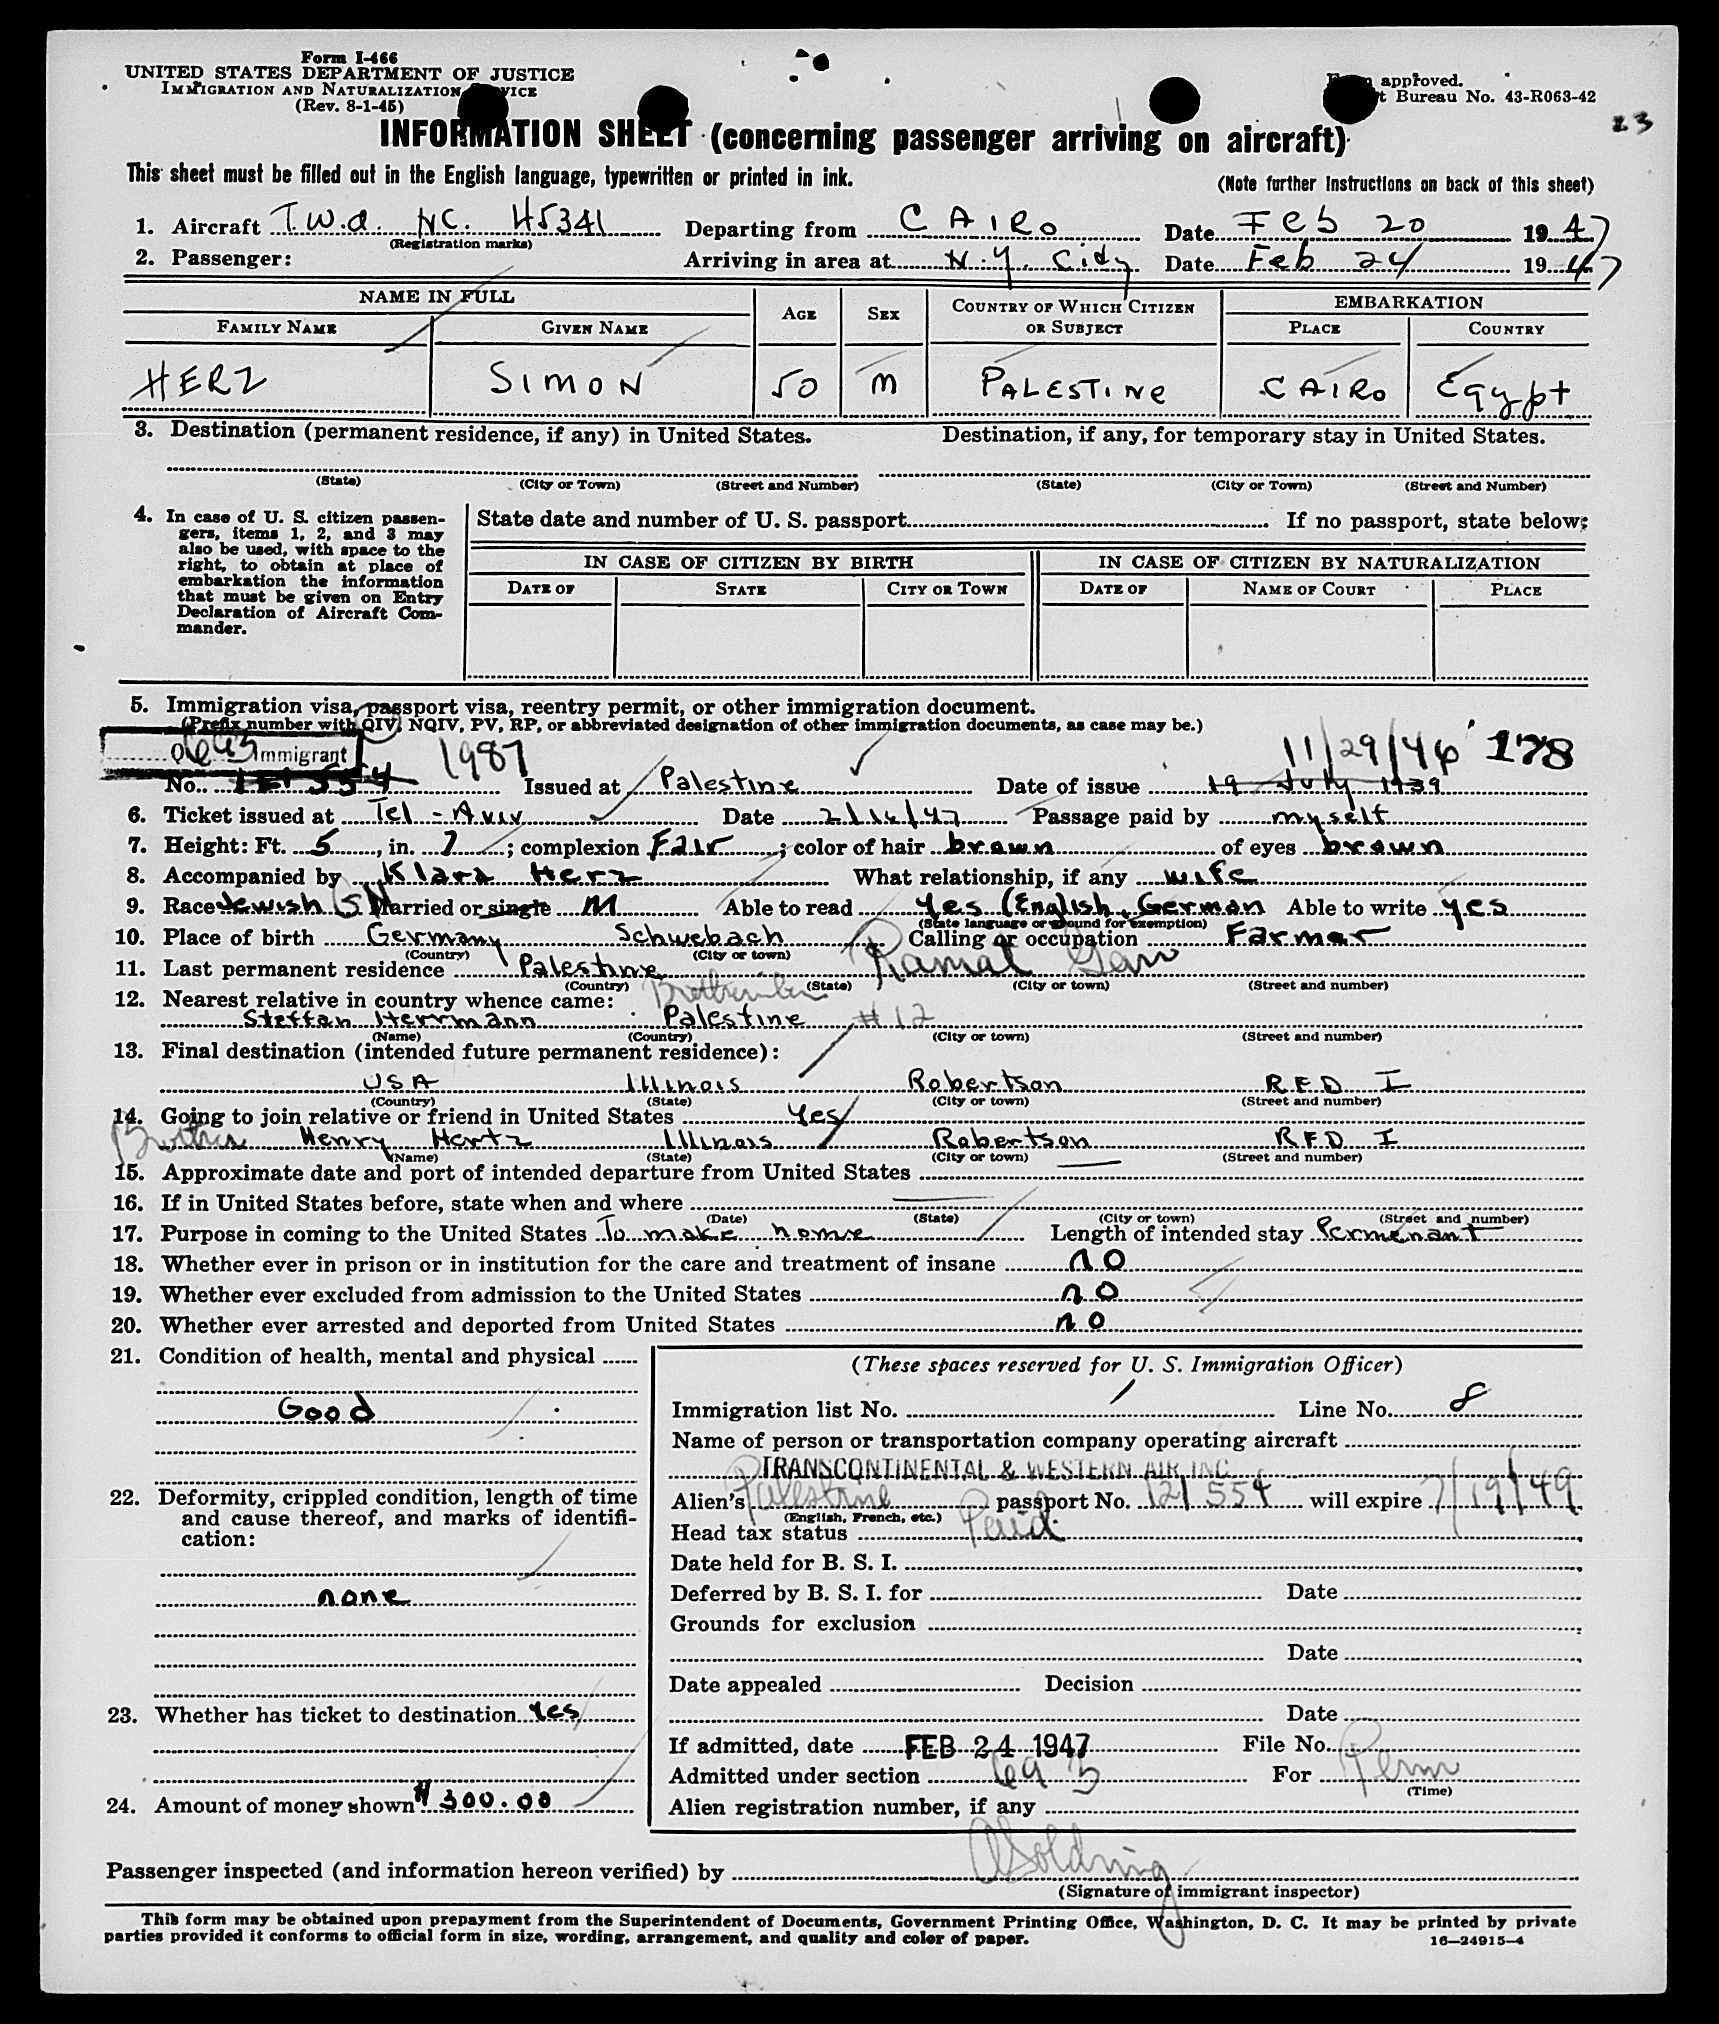 Form I-466
UNITED STATES DEPARTMENT OF JUSTICE
IMMIGRATION AND NATURALIZATION
(Rev. 8-1-45)
approved.
Bureau No. 43-R063-42
23
INFORMATION SHEET (concerning passenger arriving on aircraft)
This sheet must be filled out in the English language, typewritten or printed in ink.
(Note further instructions on back of this sheet)
1. Aircraft T.W.A. NC. 45341 Departing from CAIRO Date Feb 20 1947
(Registration marks)
2. Passenger: Arriving in area at N.Y. City Date Feb 24 1947
NAME IN FULL AGE SEX COUNTRY OF WHICH CITIZEN OR SUBJECT EMBARKATION
FAMILY NAME GIVEN NAME PLACE COUNTRY
HERZ SIMON 50 M PALESTINE CAIRO Egypt
3. Destination (permanent residence, if any) in United States. Destination, if any, for temporary stay in United States.
(State) (City or Town) (Street and Number) (State) (City or Town) (Street and Number)
4. In case of U. S. citizen passen-
gers, items 1, 2, and 3 may
also be used, with space to the
right, to obtain at place of
embarkation the information
that must be given on Entry
Declaration of Aircraft Com-
mander.
State date and number of U. S. passport If no passport, state below:
IN CASE OF CITIZEN BY BIRTH IN CASE OF CITIZEN BY NATURALIZATION
DATE OF STATE CITY OR TOWN DATE OF NAME OF COURT PLACE
5. Immigration visa, passport visa, reentry permit, or other immigration document.
(Prefix number with QIV, NQIV, PV, RP, or abbreviated designation of other immigration documents, as case may be.)
Immigrant 1987 11/29/46 178
No. Issued at Palestine Date of issue 19 July 1939
6. Ticket issued at Tel-Aviv Date 2/16/47 Passage paid by myself
7. Height: Ft. 5, in. 7; complexion Fair; color of hair brown of eyes brown
8. Accompanied by Klara Herz What relationship, if any wife
9. Race Jewish Married or single M Able to read Yes (English, German Able to write yes
(State language or ground for exemption)
10. Place of birth Germany Schwebach Calling or occupation Farmer
(Country) (City or town)
11. Last permanent residence Palestine Ramat Gan
(Country) (State) (City or town) (Street and number)
12. Nearest relative in country whence came:
Steffan Herrmann Palestine #12
(Name) (Country) (City or town) (Street and number)
13. Final destination (intended future permanent residence):
USA Illinois Robertson RFD I
(Country) (State) (City or town) (Street and number)
14. Going to join relative or friend in United States Yes
Brother Henry Hertz Illinois Robertson RFD I
(Name) (State) (City or town) (Street and number)
15. Approximate date and port of intended departure from United States
16. If in United States before, state when and where
(Date) (State) (City or town) (Street and number)
17. Purpose in coming to the United States To make home Length of intended stay Permenant
18. Whether ever in prison or in institution for the care and treatment of insane no
19. Whether ever excluded from admission to the United States no
20. Whether ever arrested and deported from United States no
21. Condition of health, mental and physical
Good
22. Deformity, crippled condition, length of time
and cause thereof, and marks of identifi-
cation:
none
23. Whether has ticket to destination Yes
24. Amount of money shown $300.00
(These spaces reserved for U. S. Immigration Officer)
Immigration list No. 1 Line No. 8
Name of person or transportation company operating aircraft
TRANSCONTINENTAL & WESTERN AIR INC
Alien's Palestine passport No. 121554 will expire 7/19/49
(English, French, etc.)
Head tax status Paid
Date held for B. S. I.
Deferred by B. S. I. for Date
Grounds for exclusion
Date
Date appealed Decision
Date
If admitted, date FEB 24 1947 File No.
Admitted under section 6a3 For Perm
(Time)
Alien registration number, if any
Passenger inspected (and information hereon verified) by
(Signature of immigrant inspector)
This form may be obtained upon prepayment from the Superintendent of Documents, Government Printing Office, Washington, D. C. It may be printed by private
parties provided it conforms to official form in size, wording, arrangement, and quality and color of paper.
16—24915-4